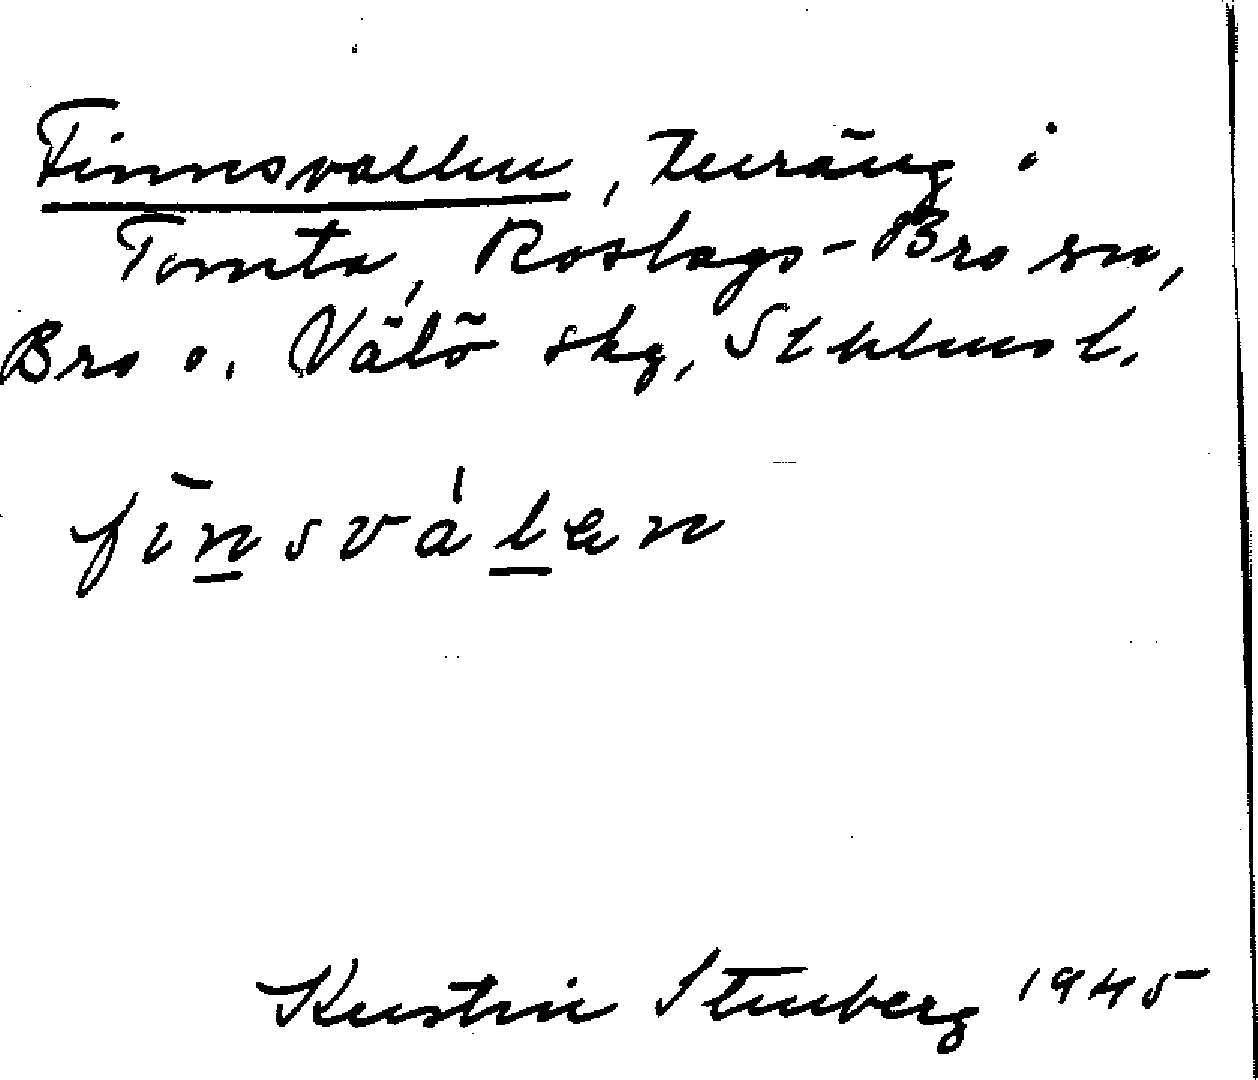 Finnsvallen, teräng i
Tomta, Roslags-Bro sn,
Bro o. Vätö skg, Sthlms l.
fīnsválen
Kerstin Stenberg 1945